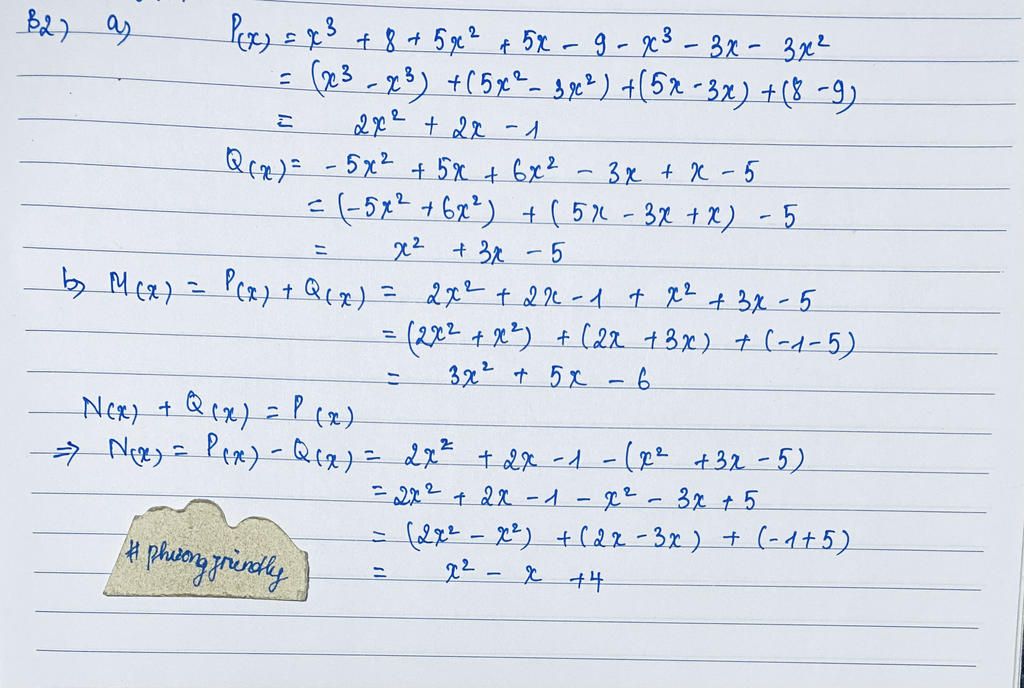 B2) a) P(x) = x³ + 8 + 5x² + 5x - 9 - x³ - 3x - 3x²
= (x³ - x³) + (5x² - 3x²) + (5x - 3x) + (8 - 9)
= 2x² + 2x - 1
Q(x) = - 5x² + 5x + 6x² - 3x + x - 5
= (-5x² + 6x²) + (5x - 3x + x) - 5
= x² + 3x - 5
b) M(x) = P(x) + Q(x) = 2x² + 2x - 1 + x² + 3x - 5
= (2x² + x²) + (2x + 3x) + (-1-5)
= 3x² + 5x - 6
N(x) + Q(x) = P(x)
⇒ N(x) = P(x) - Q(x) = 2x² + 2x - 1 - (x² + 3x - 5)
= 2x² + 2x - 1 - x² - 3x + 5
= (2x² - x²) + (2x - 3x) + (-1+5)
= x² - x + 4
# phuongfriendly